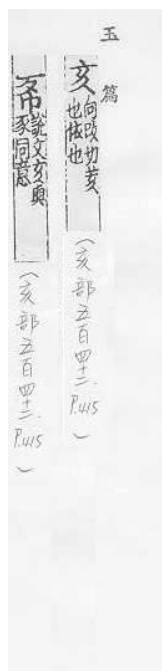 玉篇
亥 何改切荄也依也
（亥部五百四十二．P.415）
說文亥與豕同意
（亥部五百四十二．P.415）